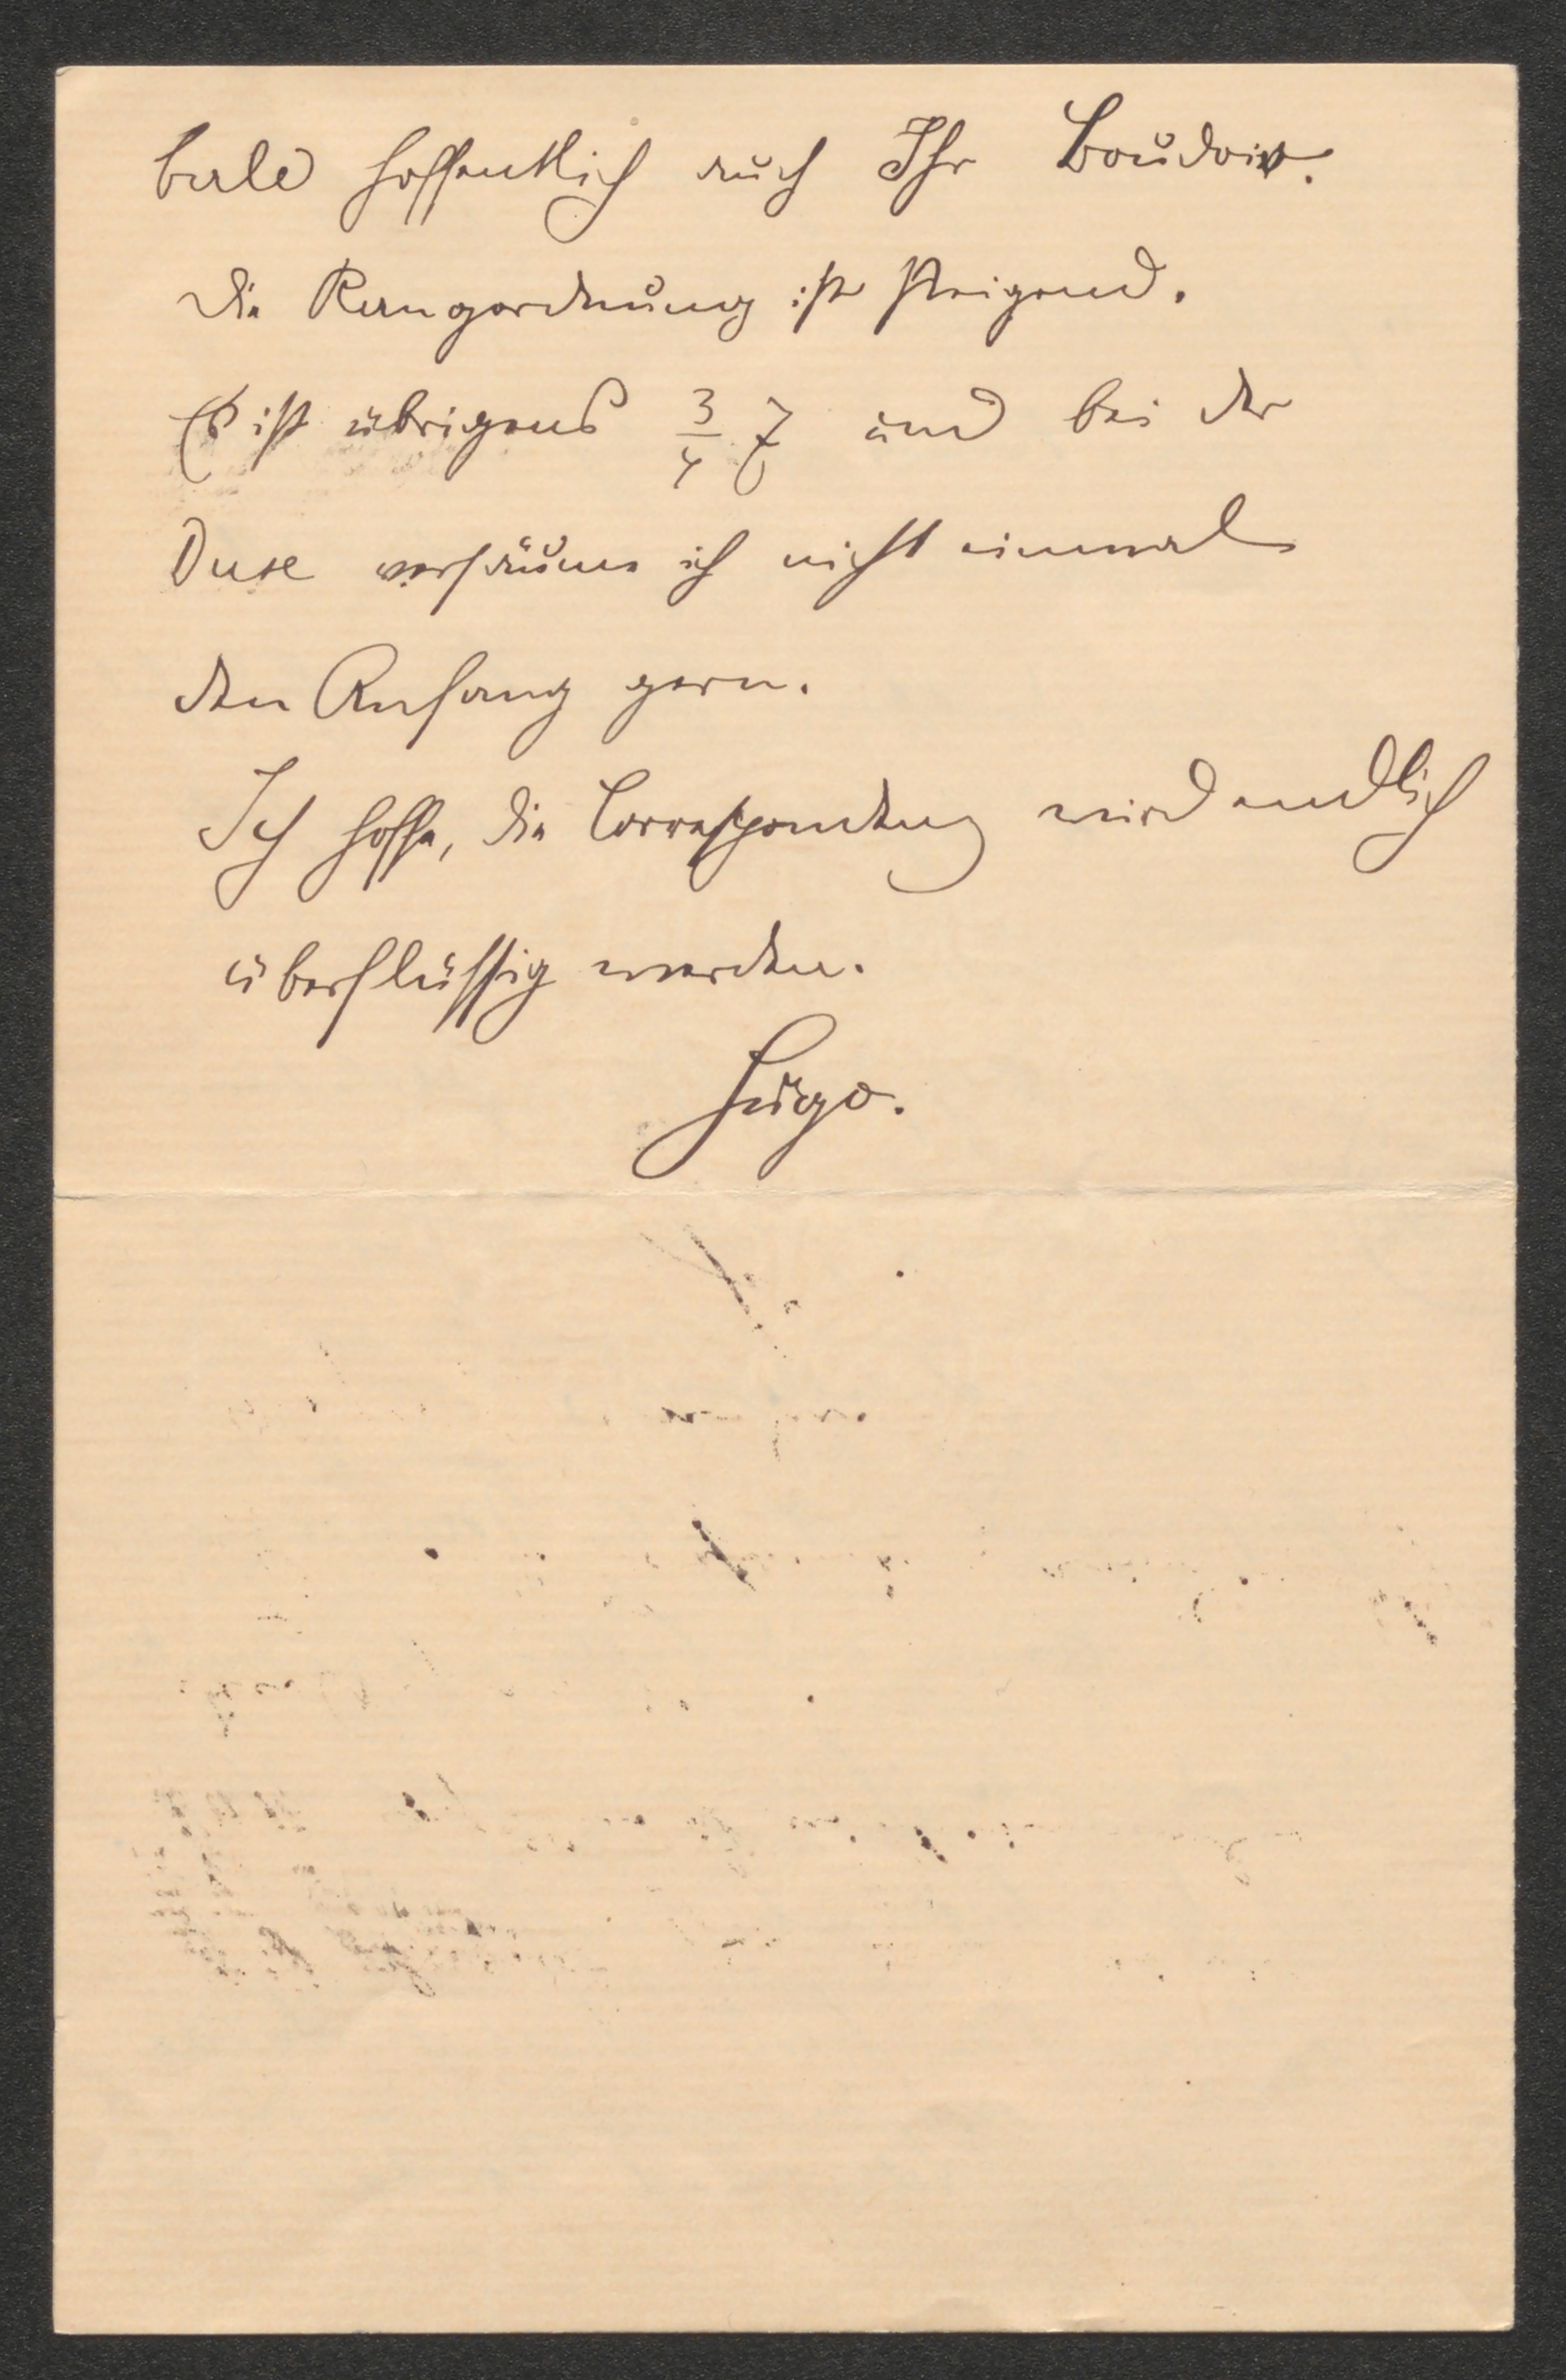 bald hoffentlich auch Ihr Boudoir.
Die Rangordnung ist steigend.
Es ist übrigens 3/4 7 und bei der
Duse versäume ich nicht einmal
den Anfang gern.
Ich hoffe, die Correspondenz wird endlich
überflüssig werden.
Hugo.